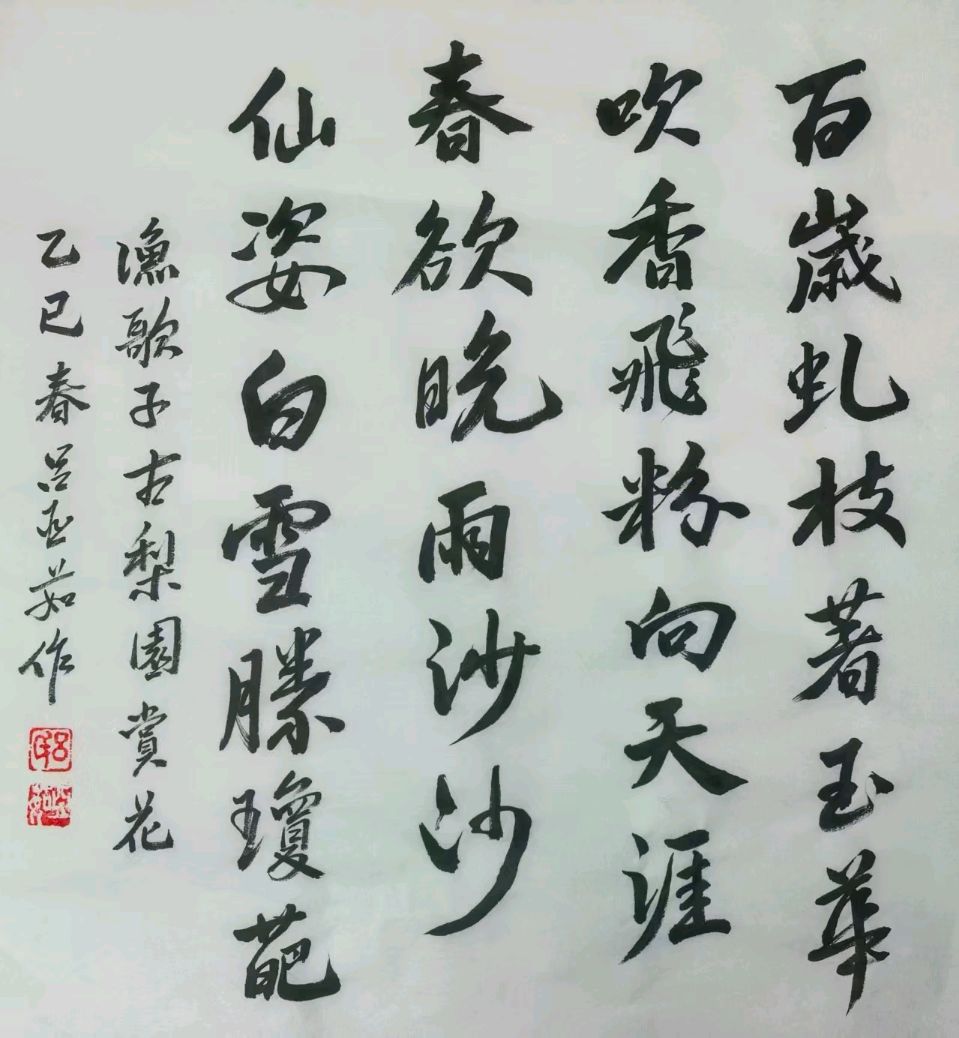 百歲虬枝著玉華
吹香飛粉向天涯
春欲晚雨沙沙
仙姿白雪勝瓊葩
漁歌子古梨園賞花
乙巳春呂亚茹作